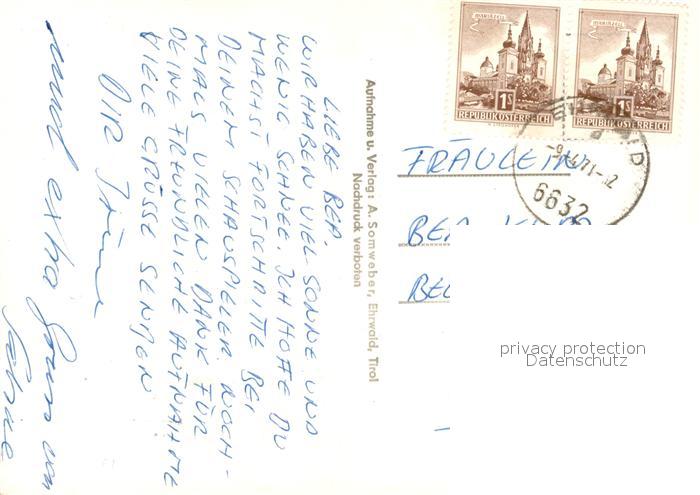 LIEBE BEA.
WIR HABEN VIEL SONNE UND
WENIG SCHNEE. ICH HOFFE DU
MACHST FORTSCHRITTE BEI
DEINEM SCHAUSPIELER. NOCH-
MALS VIELEN DANK FÜR
DEINE FREUNDLICHE AUFNAHME
VIELE GRÜSSE SENDEN
DIR
und extra Gruss von
Aufnahme u. Verlag: A. Somweber, Ehrwald, Tirol
Nachdruck verboten
MARIAZELL
1S
REPUBLIK ÖSTERREICH
MARIAZELL
1S
REPUBLIK ÖSTERREICH
6632
FRÄULEIN
BEA
privacy protection
Datenschutz